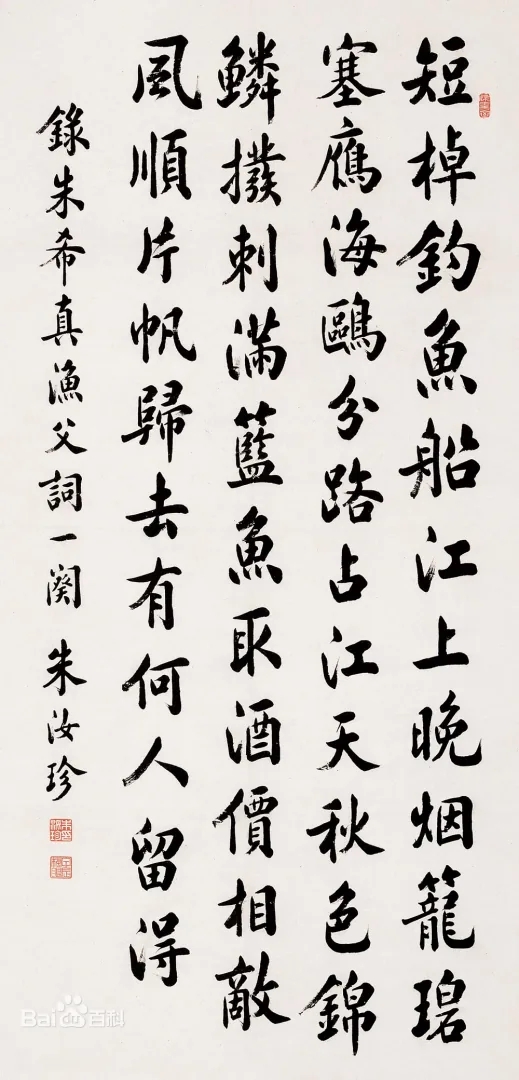 短棹釣魚船江上晚烟籠碧
塞鴈海鷗分路占江天秋色錦
鱗撥刺滿籃魚取酒價相敵
風順片帆歸去有何人留得
錄朱希真漁父詞一闋 朱汝珍
Bai百科